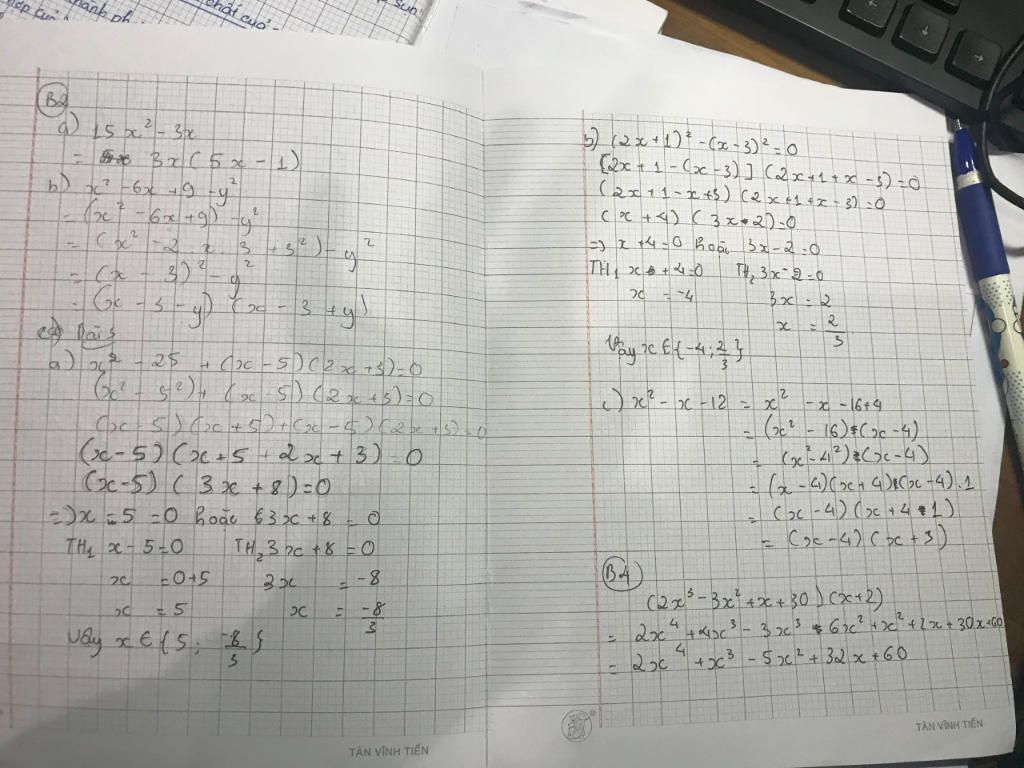 chất cuả
B2
a) 15x² - 3x
= 3x(5x - 1)
b) x² - 6x + 9 - y²
= (x² - 6x + 9) - y²
= (x² - 2 . x . 3 + 3²) - y²
= (x - 3)² - y²
= (x - 3 - y) (x - 3 + y)
Bài 3
a) x² - 25 + (x - 5)(2x + 3) = 0
(x² - 5²) + (x - 5)(2x + 3) = 0
(x - 5)(x + 5) + (x - 5)(2x + 3) = 0
(x - 5)(x + 5 + 2x + 3) = 0
(x - 5)(3x + 8) = 0
=> x - 5 = 0 hoặc 3x + 8 = 0
TH₁ x - 5 = 0 TH₂ 3x + 8 = 0
x = 0 + 5 3x = -8
x = 5 x = -8/3
Vậy x ∈ {5; -8/3}
b) (2x + 1)² - (x - 3)² = 0
[2x + 1 - (x - 3)] (2x + 1 + x - 3) = 0
(2x + 1 - x + 3) (2x + 1 + x - 3) = 0
(x + 4) (3x - 2) = 0
=> x + 4 = 0 hoặc 3x - 2 = 0
TH₁ x + 4 = 0 TH₂ 3x - 2 = 0
x = -4 3x = 2
x = 2/3
Vậy x ∈ {-4; 2/3}
c) x² - x - 12 = x² - x - 16 + 4
= (x² - 16) - (x - 4)
= (x² - 4²) - (x - 4)
= (x - 4)(x + 4) - (x - 4) . 1
= (x - 4)(x + 4 - 1)
= (x - 4)(x + 3)
B4
(2x³ - 3x² + x + 30)(x + 2)
= 2x⁴ + 4x³ - 3x³ - 6x² + x² + 2x + 30x + 60
= 2x⁴ + x³ - 5x² + 32x + 60
TÂN VĨNH TIẾN
TÂN VĨNH TIẾN